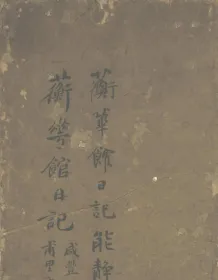 蘅華館日記能靜
蘅華館日記
咸豐
甫里